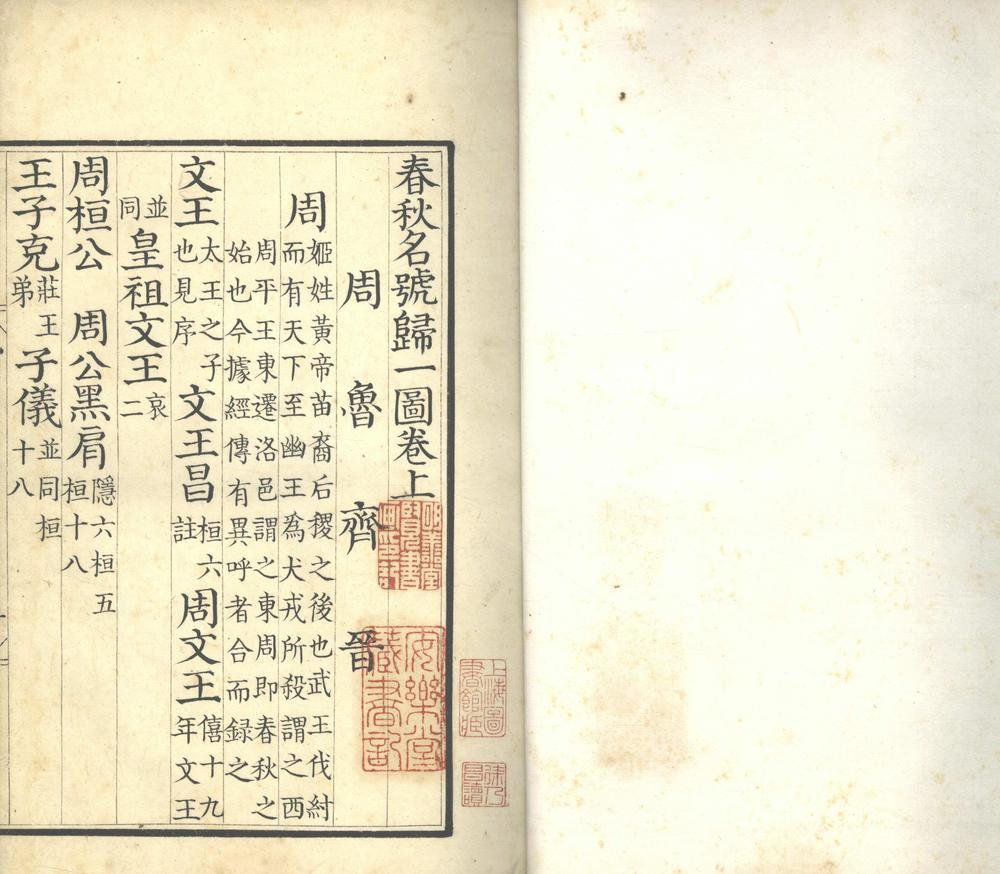 春秋名號歸一圖卷上
周 魯 齊 晉
周 姬姓黃帝苗裔后稷之後也武王伐紂
而有天下至幽王為犬戎所殺謂之西
周平王東遷洛邑謂之東周即春秋之
始也今據經傳有異呼者合而録之
文王 太王之子也見序 文王昌 桓六註 周文王 僖十九年文王
並同 皇祖文王 哀二
周桓公 周公黑肩 隱六桓五桓十八
王子克 莊王弟 子儀 並同桓十八
安樂堂藏書記
上海圖書館藏